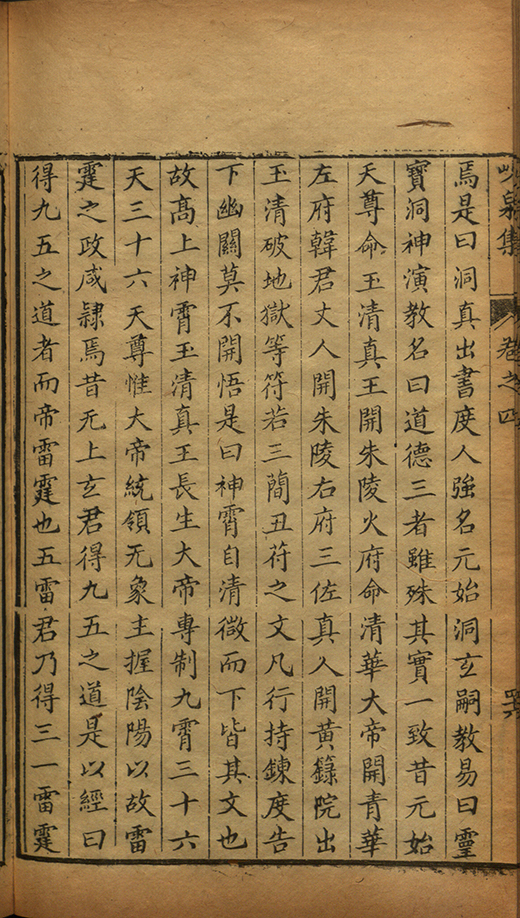 峴泉集 卷之四
焉是曰洞真出書度人強名元始洞玄嗣教易曰靈
寶洞神演教名曰道德三者雖殊其實一致昔元始
天尊命玉清真王開朱陵火府命清華大帝開青華
左府韓君丈人開朱陵右府三佐真人開黃籙院出
玉清破地獄等符若三簡丑符之文凡行持鍊度告
下幽關莫不開悟是曰神霄自清微而下皆其文也
故高上神霄玉清真王長生大帝專制九霄三十六
天三十六天尊惟大帝統領无象主握陰陽以故雷
霆之政咸隸焉昔无上玄君得九五之道是以經曰
得九五之道者而帝雷霆也五雷君乃得三一雷霆